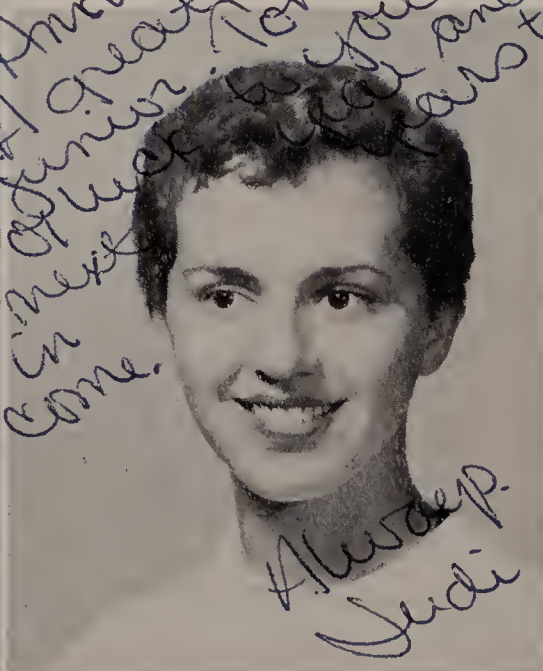 great
Junior.
luck to you
in next year and
in years to
come.
Always.
Judi